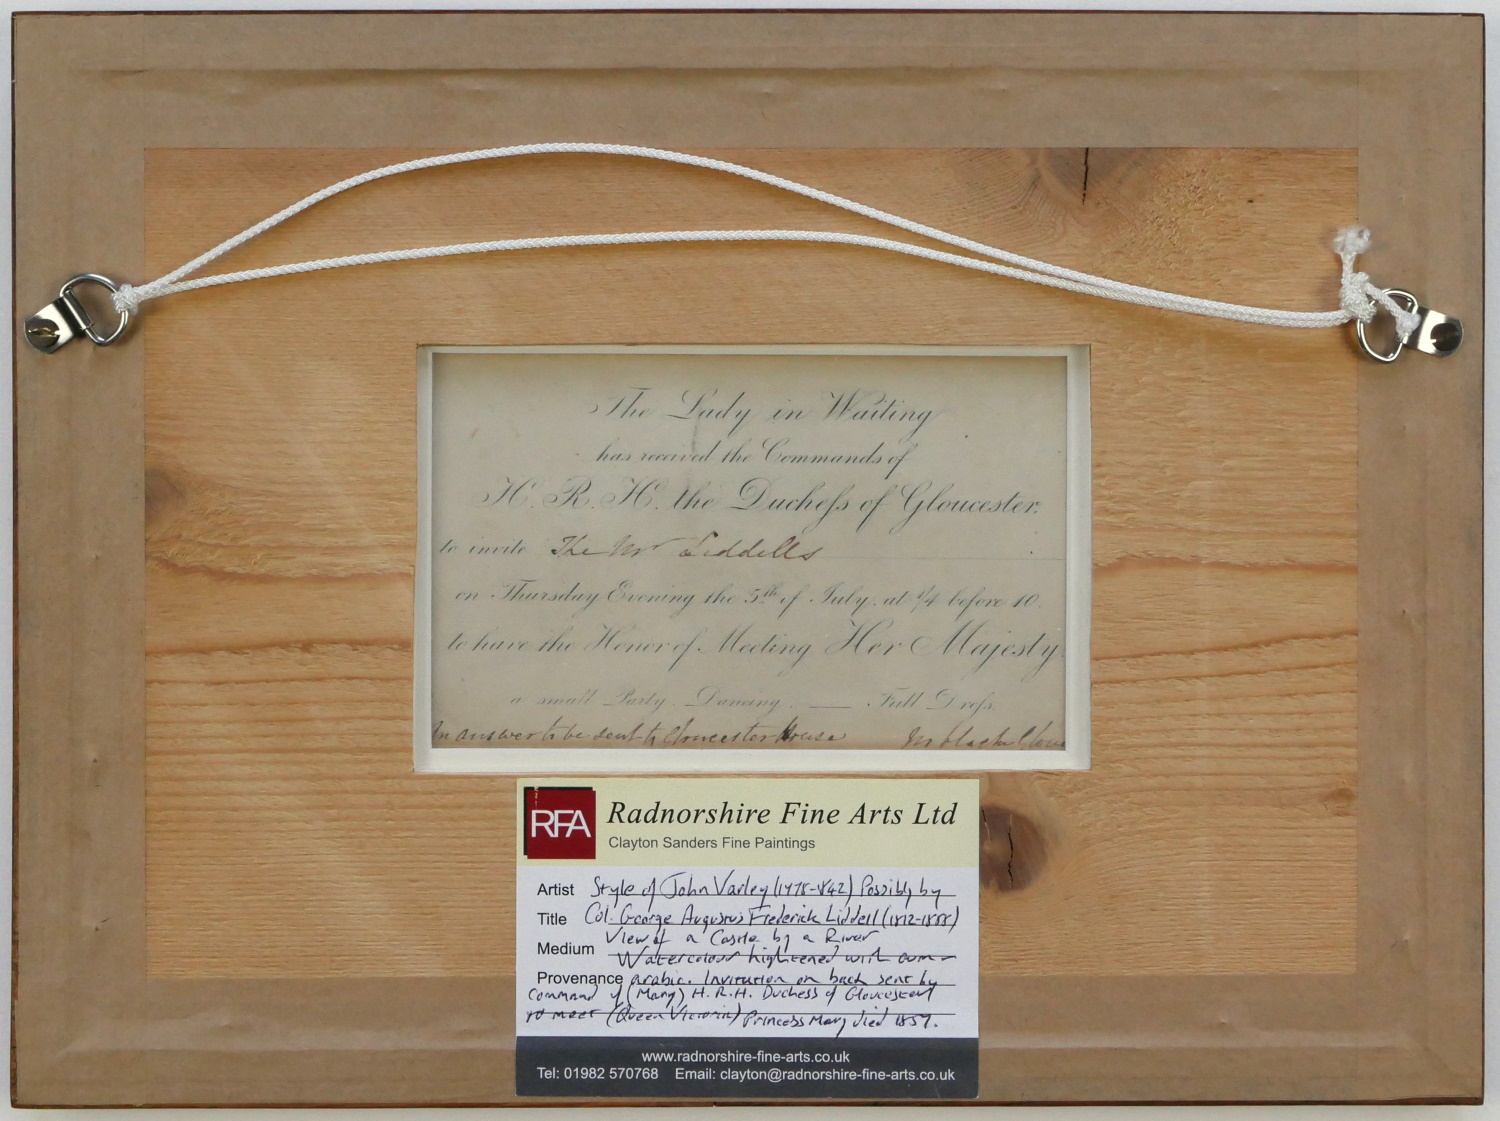 The Lady in Waiting
has received the Commands of
H. R. H. the Duchess of Gloucester,
to invite The Mr Liddells
on Thursday Evening the 5th of July, at 1/4 before 10.
to have the Honor of Meeting Her Majesty
a small Party. Dancing. — Full Dress.
An answer to be sent to Gloucester House
RFA
Radnorshire Fine Arts Ltd
Clayton Sanders Fine Paintings
Artist Style of John Varley (1778-1842) Possibly by
Title Col. George Augustus Frederick Liddell (1812-1888)
View of a Castle by a River
Medium Watercolour hightened with gum
Provenance arabic. Invitation on back sent by
Command of (Mary) H.R.H. Duchess of Gloucester
to meet (Queen Victoria) Princess Mary died 1857.
www.radnorshire-fine-arts.co.uk
Tel: 01982 570768 Email: clayton@radnorshire-fine-arts.co.uk